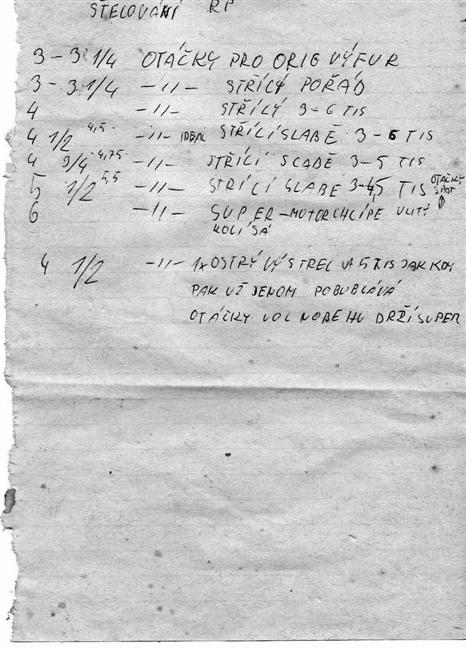 ŠTELOVÁNÍ RP
3 - 3 1/4 OTÁČKY PRO ORIG VÝFUK
3 - 3 1/4 -11- STŘÍLÝ POŘÁD
4 -11- STŘÍLÝ 3-6 TIS
4 1/2 4,5 -11- IDEAL STŘÍLÍ SLABĚ 3-6 TIS
4 3/4 4,75 -11- STŘÍLÍ SLABĚ 3-5 TIS
5 1/2 5,5 -11- STŘÍLÍ SLABĚ 3-4,5 TIS OTÁČKY SPAT
6 -11- SUPER-MOTOR CHCÍPE
KOLÍSÁ
4 1/2 -11- 1x OSTRÝ VÝSTREL V 5 TIS JAK KDY
PAK UŽ JENOM POBUBLÁVÁ
OTÁČKY VOLNOBEHU DRŽÍ SUPER